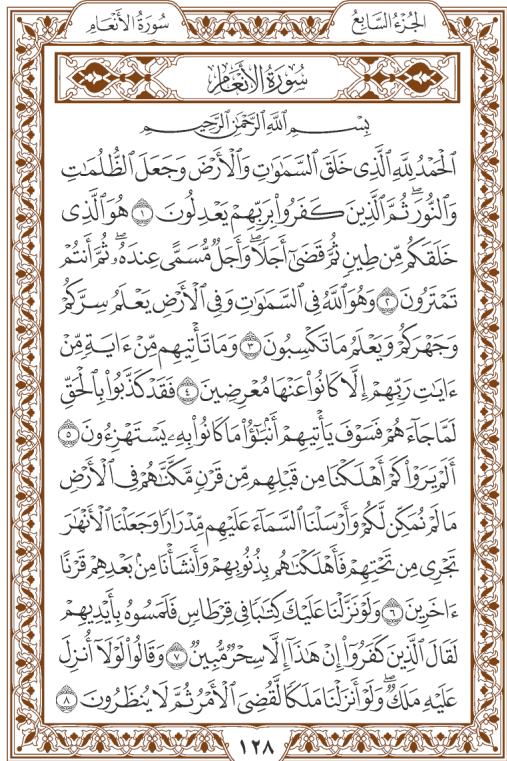 سُورَةُ الأَنْعَامِ
الجُزْءُ السَّابِعُ
سُورَةُ الأَنْعَامِ
بِسْمِ ٱللَّهِ ٱلرَّحْمَٰنِ ٱلرَّحِيمِ
ٱلْحَمْدُ لِلَّهِ ٱلَّذِى خَلَقَ ٱلسَّمَٰوَٰتِ وَٱلْأَرْضَ وَجَعَلَ ٱلظُّلُمَٰتِ
وَٱلنُّورَ ۖ ثُمَّ ٱلَّذِينَ كَفَرُوا۟ بِرَبِّهِمْ يَعْدِلُونَ ١ هُوَ ٱلَّذِى
خَلَقَكُم مِّن طِينٍ ثُمَّ قَضَىٰٓ أَجَلًا ۖ وَأَجَلٌ مُّسَمًّى عِندَهُۥ ۖ ثُمَّ أَنتُمْ
تَمْتَرُونَ ٢ وَهُوَ ٱللَّهُ فِى ٱلسَّمَٰوَٰتِ وَفِى ٱلْأَرْضِ يَعْلَمُ سِرَّكُمْ
وَجَهْرَكُمْ وَيَعْلَمُ مَا تَكْسِبُونَ ٣ وَمَا تَأْتِيهِم مِّنْ ءَايَةٍ مِّنْ
ءَايَٰتِ رَبِّهِمْ إِلَّا كَانُوا۟ عَنْهَا مُعْرِضِينَ ٤ فَقَدْ كَذَّبُوا۟ بِٱلْحَقِّ
لَمَّا جَآءَهُمْ فَسَوْفَ يَأْتِيهِمْ أَنۢبَٰٓؤُا۟ مَا كَانُوا۟ بِهِۦ يَسْتَهْزِءُونَ ٥
أَلَمْ يَرَوْا۟ كَمْ أَهْلَكْنَا مِن قَبْلِهِم مِّن قَرْنٍ مَّكَّنَّٰهُمْ فِى ٱلْأَرْضِ
مَا لَمْ نُمَكِّن لَّكُمْ وَأَرْسَلْنَا ٱلسَّمَآءَ عَلَيْهِم مِّدْرَارًا وَجَعَلْنَا ٱلْأَنْهَٰرَ
تَجْرِى مِن تَحْتِهِمْ فَأَهْلَكْنَٰهُم بِذُنُوبِهِمْ وَأَنشَأْنَا مِنۢ بَعْدِهِمْ قَرْنًا
ءَاخَرِينَ ٦ وَلَوْ نَزَّلْنَا عَلَيْكَ كِتَٰبًا فِى قِرْطَاسٍ فَلَمَسُوهُ بِأَيْدِيهِمْ
لَقَالَ ٱلَّذِينَ كَفَرُوٓا۟ إِنْ هَٰذَآ إِلَّا سِحْرٌ مُّبِينٌ ٧ وَقَالُوا۟ لَوْلَآ أُنزِلَ
عَلَيْهِ مَلَكٌ ۖ وَلَوْ أَنزَلْنَا مَلَكًا لَّقُضِىَ ٱلْأَمْرُ ثُمَّ لَا يُنظَرُونَ ٨
١٢٨